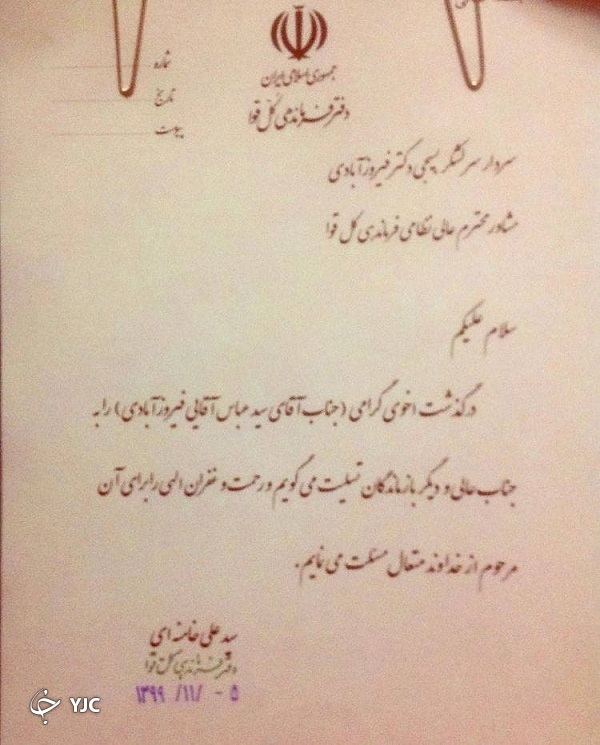 جمهوری اسلامی ایران
دفتر فرماندهی کل قوا
شماره
تاریخ
پیوست
سردار سرلشکر بسیجی دکتر فیروزآبادی
مشاور محترم عالی نظامی فرماندهی کل قوا
سلام علیکم
درگذشت اخوی گرامی (جناب آقای سید عباس آقایی فیروزآبادی) را به
جناب عالی و دیگر بازماندگان تسلیت می گویم و رحمت و غفران الهی را برای آن
مرحوم از خداوند متعال مسئلت می نمایم.
سید علی خامنه ای
دفتر فرماندهی کل قوا
۵ - /۱۱/ ۱۳۹۹
YJC